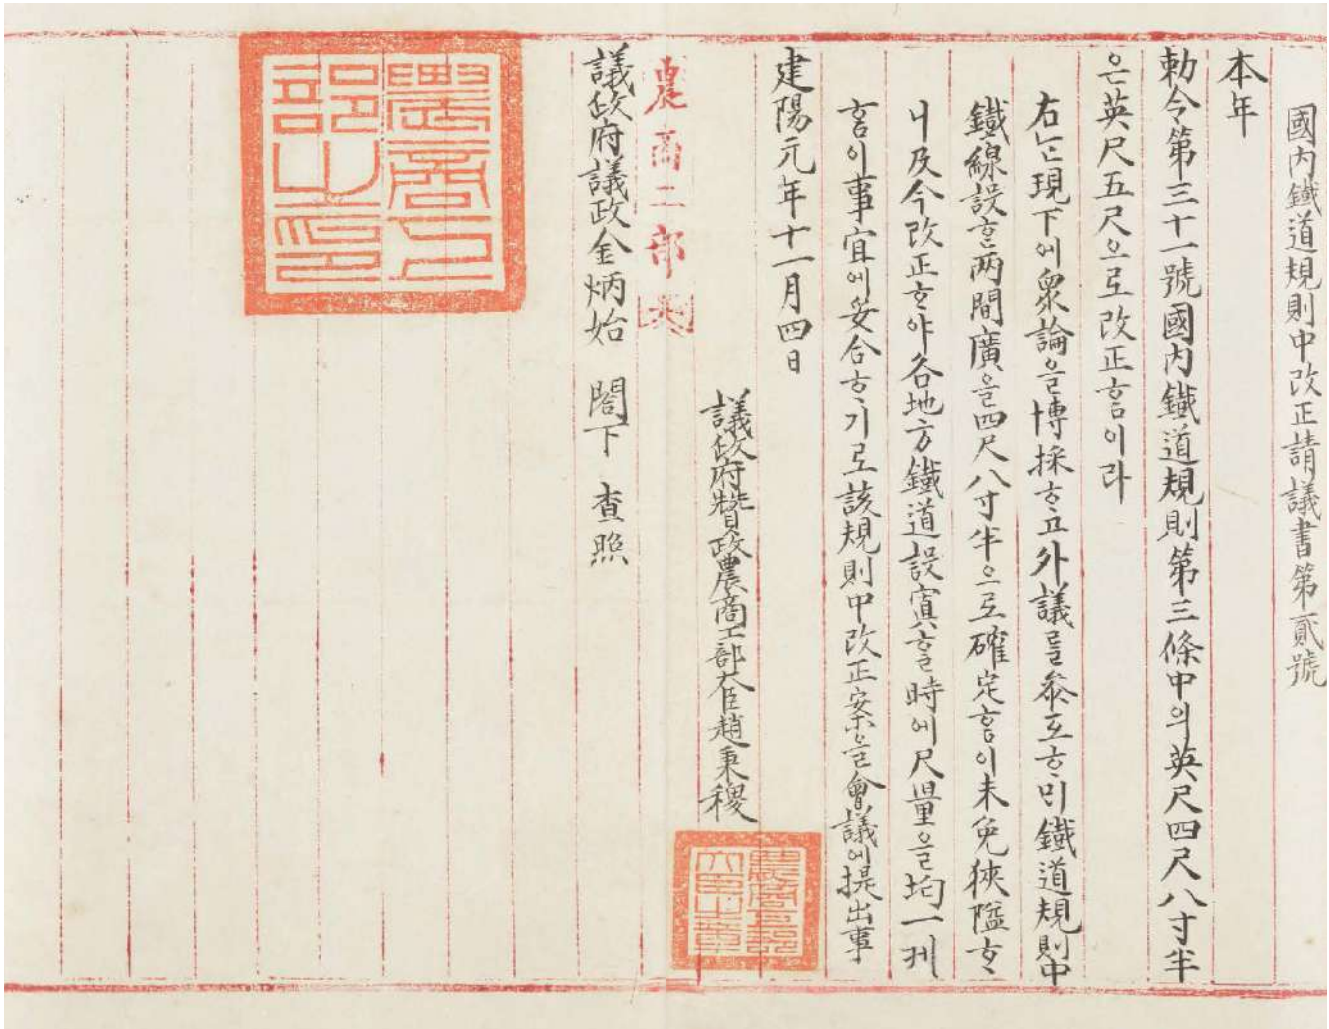 國內鐵道規則中改正請議書第貳號
本年
勅令第三十一號國內鐵道規則第三條中의英尺四尺八寸半
은英尺五尺으로改正홈이라
右는現下에衆論을博採ᄒᆞ고外議를叅互ᄒᆞ미鐵道規則中
鐵線設ᄒᆞᆫ兩間廣을四尺八寸半으로確定홈이未免狹隘ᄒᆞ
니及今改正ᄒᆞ야各地方鐵道設寘ᄒᆞᆯ時에尺量을均一케
홈이事宜에妥合ᄒᆞ기로該規則中改正案을會議에提出事
建陽元年十一月四日
議政府贊政農商工部大臣趙秉稷
農商工部大臣之章
農商二部
議政府議政金炳始 閤下 査照
農商工部之印